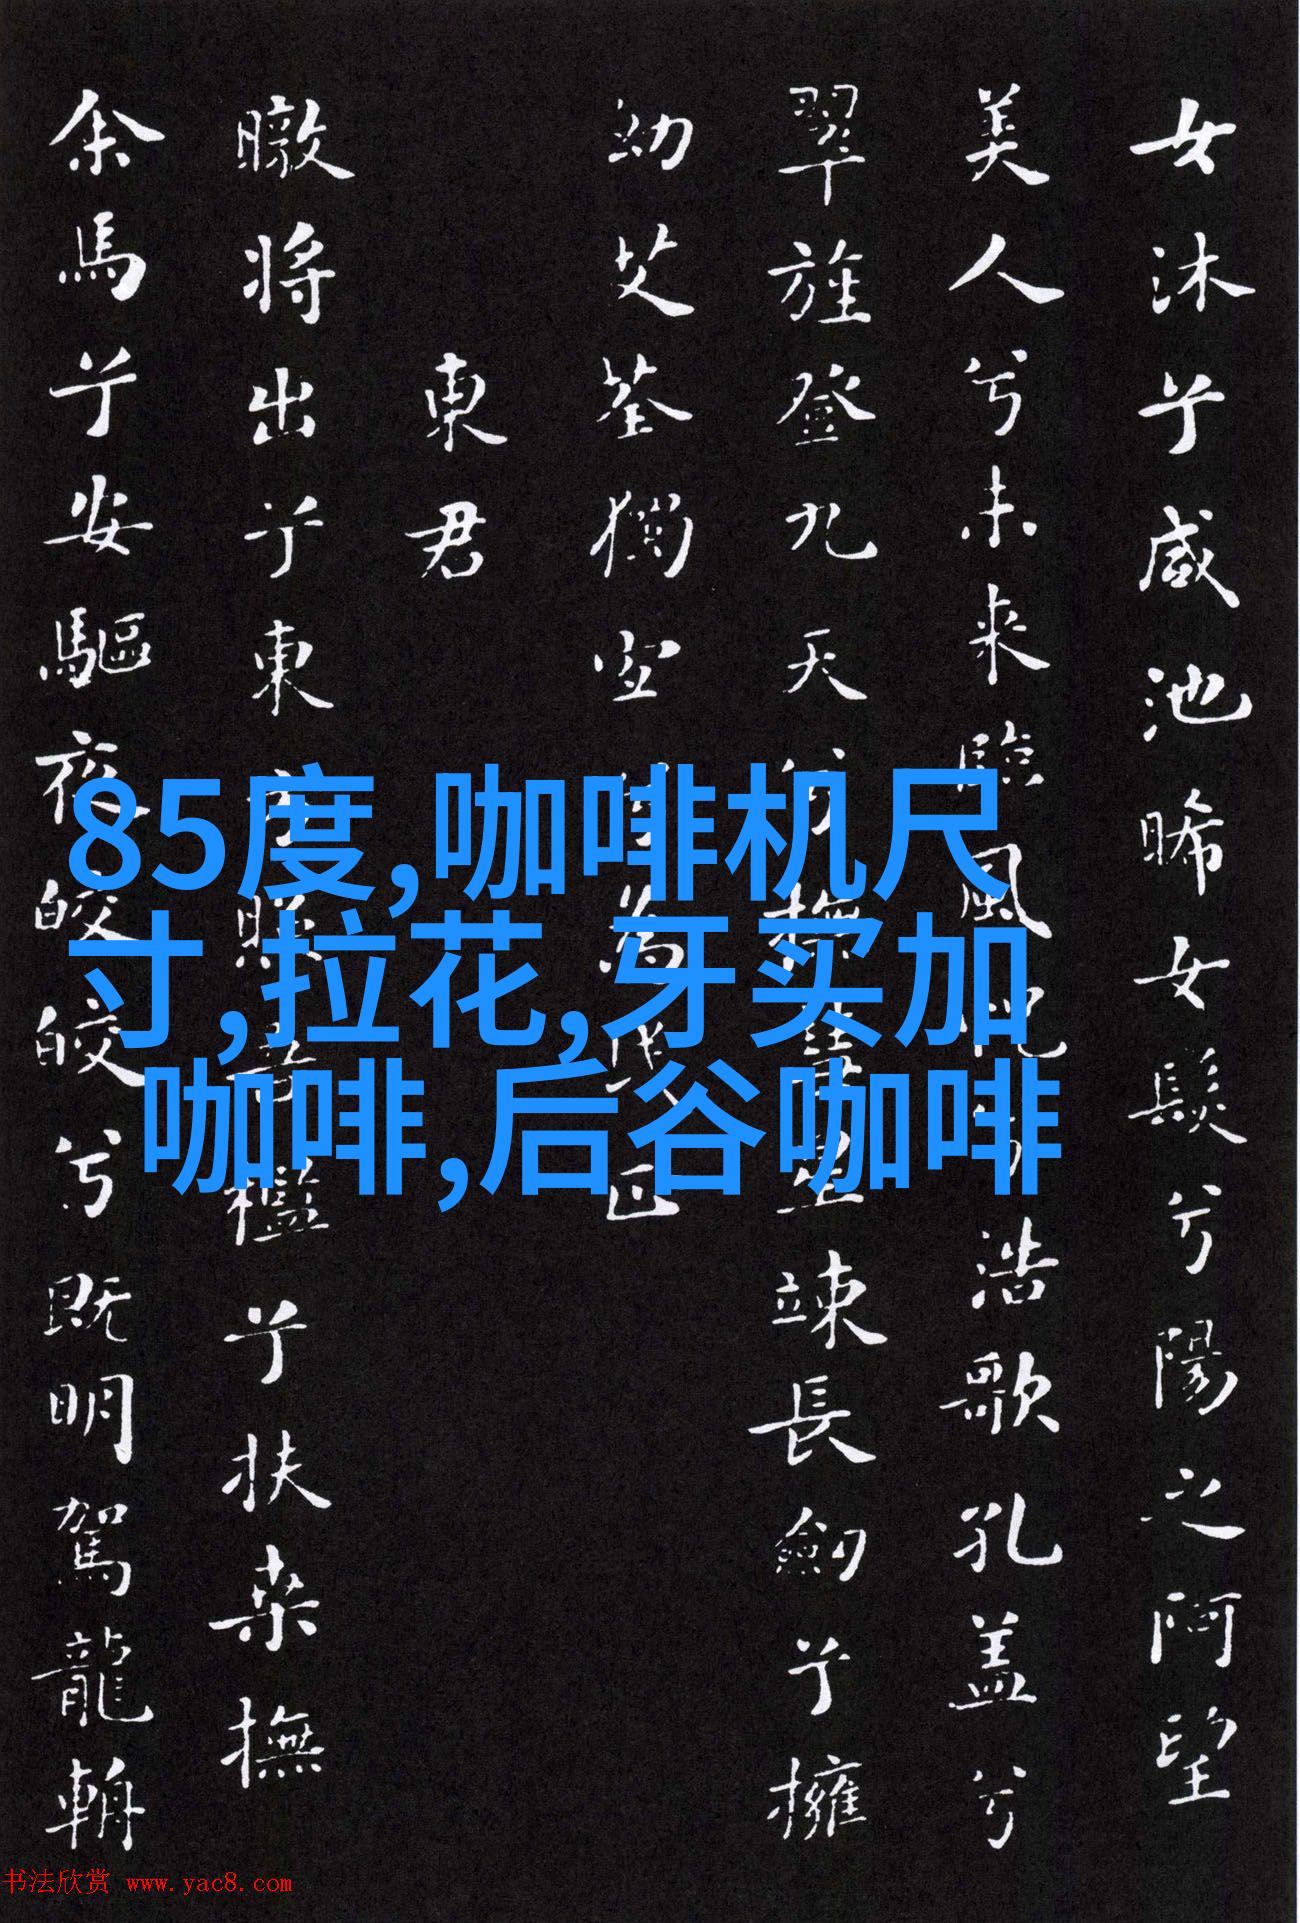 女沐兮咸池晞女髮兮陽之阿望
美人兮未来臨風怳兮浩歌孔盖兮
翠旌登九天兮撫彗星竦長劍兮擁
幼艾荃獨宜兮為民正
東君
暾将出兮東方照吾檻兮扶桑撫
余馬兮安驅夜皎皎兮既明駕龍輈
85度,咖啡机尺
寸,拉花,牙买加
咖啡,后谷咖啡
书法欣赏 www.yac8.com